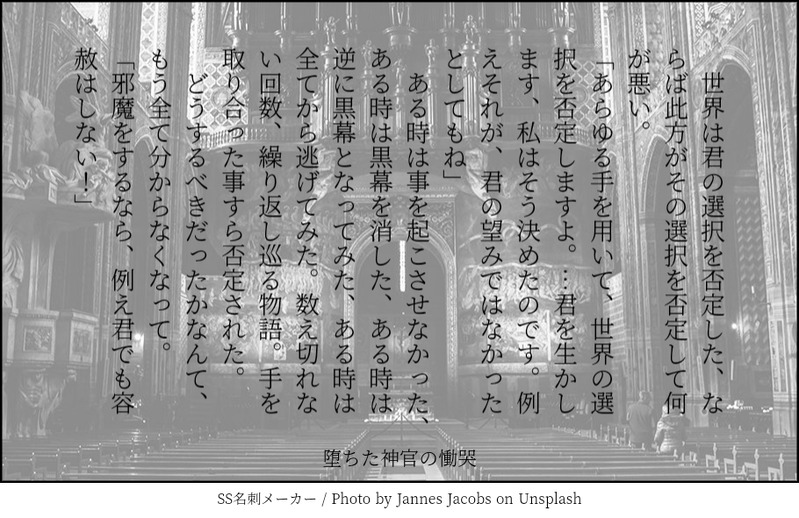 世界は君の選択を否定した、な
らば此方がその選択を否定して何
が悪い。
「あらゆる手を用いて、世界の選
択を否定しますよ。…君を生かし
ます、私はそう決めたのです。例
えそれが、君の望みではなかった
としてもね」
ある時は事を起こさせなかった、
ある時は黒幕を消した、ある時は
逆に黒幕となってみた、ある時は
全てから逃げてみた。数え切れな
い回数、繰り返し巡る物語。手を
取り合った事すら否定された。
どうするべきだったかなんて、
もう全て分からなくなって。
「邪魔をするなら、例え君でも容
赦はしない！」
堕ちた神官の慟哭
SS名刺メーカー / Photo by Jannes Jacobs on Unsplash